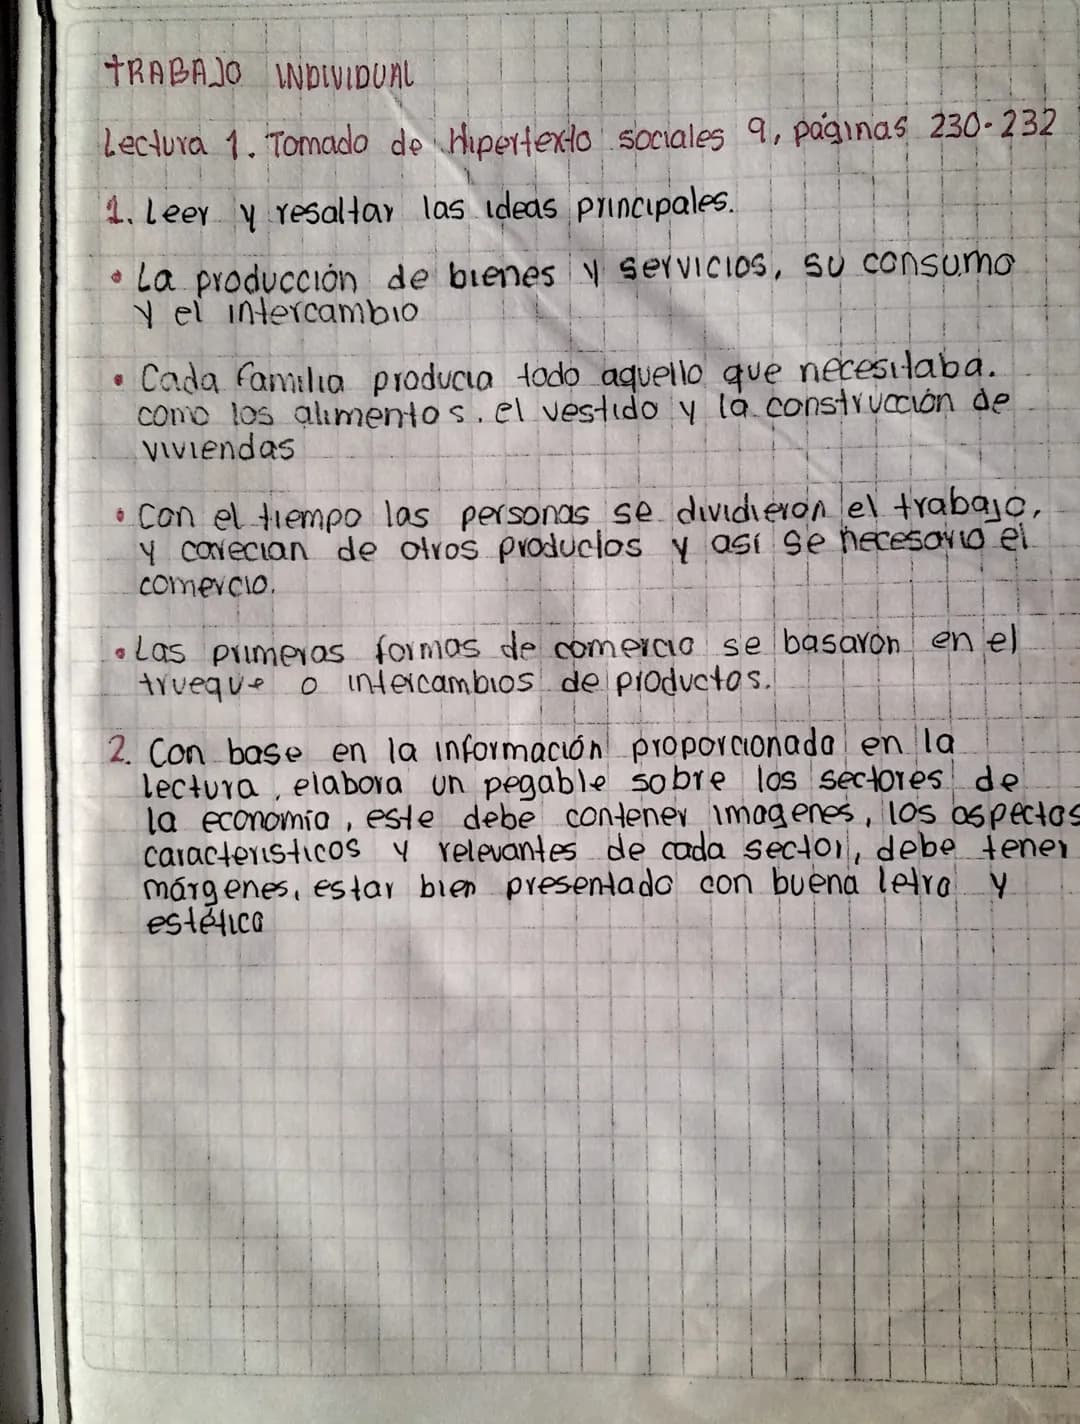 TRABAJO INDIVIDUAL
Lectura 1. Tomado de Hipertexto sociales 9, páginas 230-232
1. Leer y resaltar las ideas principales.
• La producción de bienes y servicios, su consumo
y el intercambio
• Cada familia producia todo aquello que necesitaba.
como los alimentos. el vestido y la construcción de
viviendas
• Con el tiempo las personas se dividieron el trabajo,
y carecian de otros productos y así se necesario el
comercio.
• Las primeras formas de comercio se basaron en el
trueque o intercambios de productos.
2. Con base en la información proporcionada en la
lectura, elabora un pegable sobre los sectores de
la economía, este debe contener imagenes, los aspectos
caracteristicos y relevantes de cada sector, debe tener
márgenes, estar bien presentado con buena letra y
estética